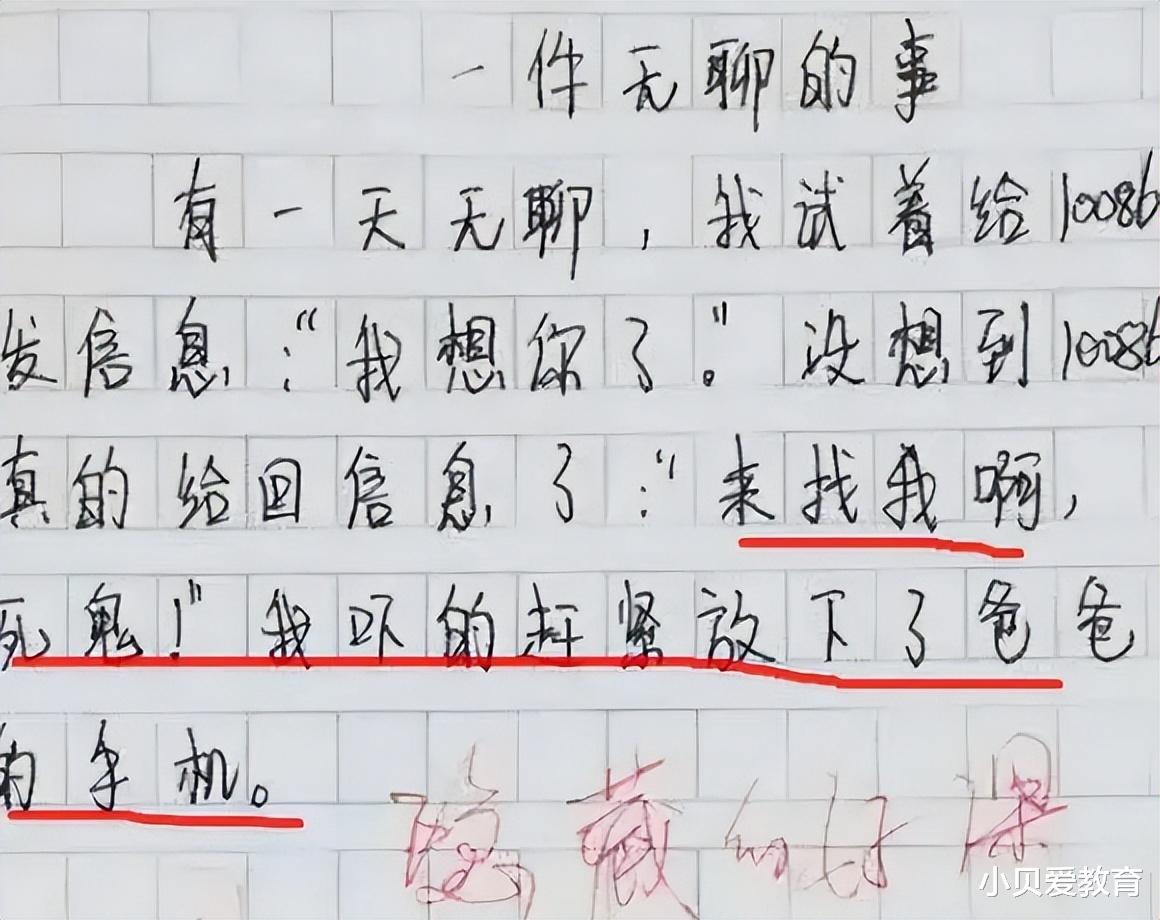 一件无聊的事
有一天无聊，我试着给10086
发信息：“我想你了。”没想到10086
真的给回信息了：“来找我啊，
死鬼！”我吓的赶紧放下了爸爸
的手机。
隐藏的好深
小贝爱教育